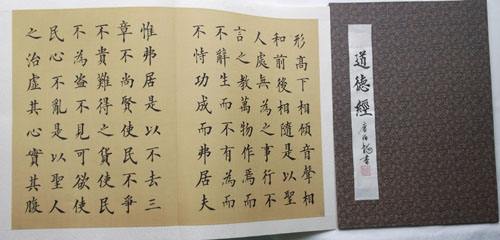 道德經
形高下相傾音聲相
和前後相隨是以聖
人處無為之事行不
言之教萬物作焉而
不辭生而不有為而
不恃功成而弗居夫
惟弗居是以不去三
章不尚賢使民不爭
不貴難得之貨使民
不為盜不見可欲使
民心不亂是以聖人
之治虛其心實其腹